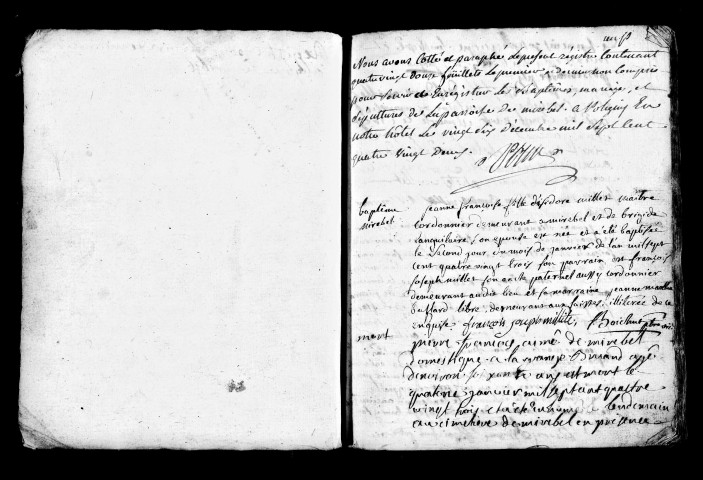 Nous avons Cotté et paraphé le present registre Contenant
quatre vingt douse feuillets le premier et dernier non Compris
pour servir à Enregistrer les Baptêmes, mariages, et
sépultures de la paroisse de mirebel. a Poligny En
notre hotel le vingt six Décembre mil Sept Cent
quatre vingt Deux.
baptême
mirebel
jeanne françoise fille d'isidore millet maitre
Cordonnier demeurant a mirebel et de brigide
son epouse est née et a été baptisée
le second jour du mois de janvier de l'an mil sept
cent quatre vingt trois son parrain est françois
joseph millet son oncle paternel aussy Cordonnier
demeurant audit lieu et sa marraine jeanne
libre, demeurant aux faisses, illiterée de ce
enquise. françois joseph millet,
mort
pierre françois aimé de mirebel
domestique a la grange agé
d'environ soixante ans est mort le
quatorze janvier mil sept cent quatre
vingt trois et a été inhumé le lendemain
au cimetière de mirebel en présence